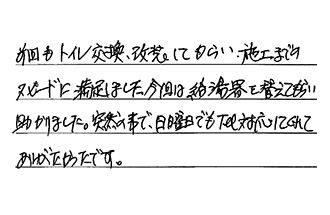 前回もトイレ交換、改装してもらい、施工までの
スピードに満足しました。今回は給湯器を替えてもらい
助かりました。突然の事で、日曜日でもTEL対応してくれて
ありがたかったです。